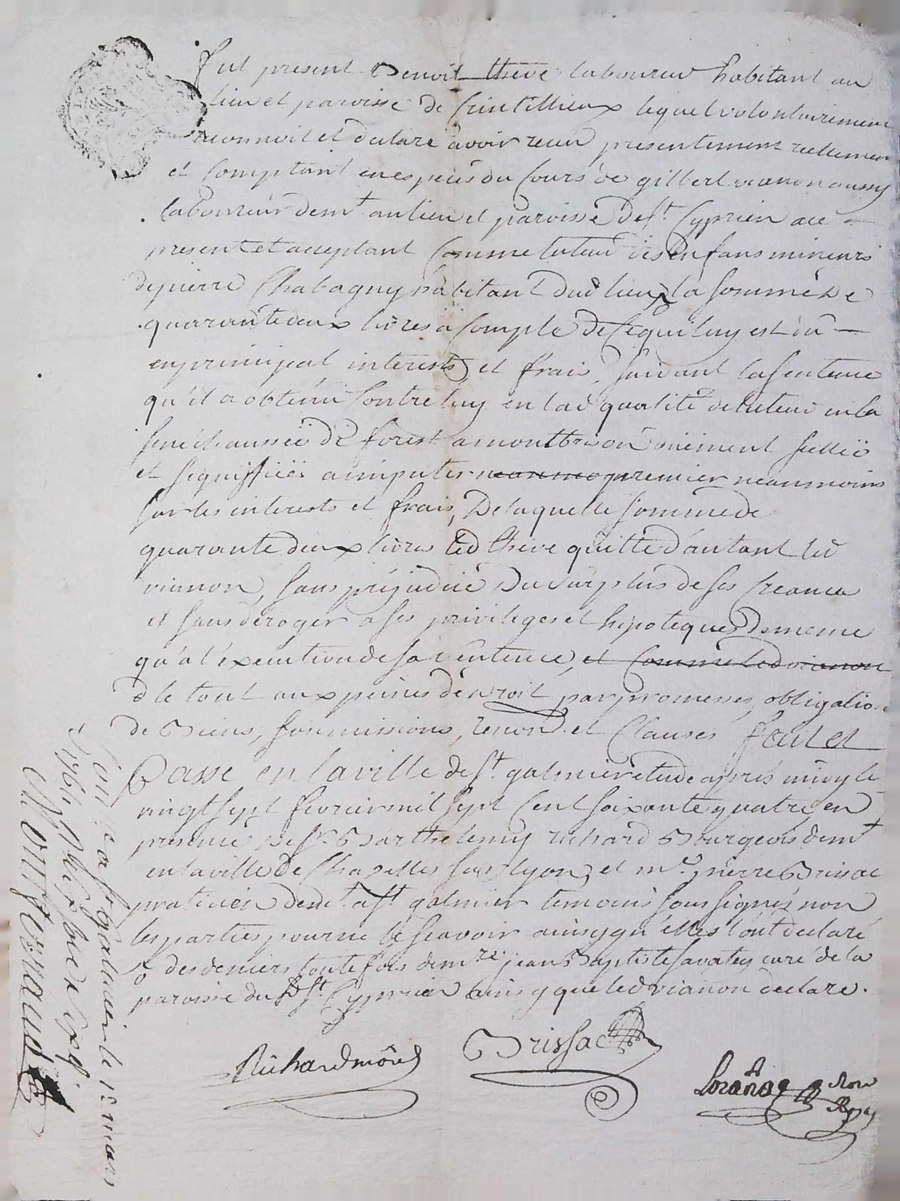 fut present Benoit theve laboureur habitant au
lieu et paroisse de lequel volontairement
reconnoit et declare avoir receu presentement reellement
et comptant en especes du cours de gilbert vianon aussy
laboureur demt au lieu et paroisse de st. Cyprien ace
present et acceptant comme tuteur des Enfans mineurs
de pierre Chabagny habitant dud lieu la somme de
quarante deux livres a compte de ce qui luy est dû
en principal interests et frais, suivant la sentence
qu'il a obtenu contre luy en lad qualité de tuteur en la
senechaussée de forest a montbrison scellée
et signiffiée a imputer premier neanmoins
sur les interests et frais, De laquelle somme de
quarante deux livres led theve quitte d'autant led
vianon, sans prejudice du surplus de ses creances
et sans deroger a ses privileges et hipoteques de meme
qu'a l'execution de sa sentence, et comme led vianon
le tout aux peines de droit par promesses, obligation
de Biens, soumissions, renon et clauses fait et
Passé en la ville de st. galmier etude apres midy le
vingt sept fevrier mil sept cent soixante quatre en
presence de sr. Barthelemy richard Bourgeois demt
en la ville de Chazelles sur lyon et me. pierre Brissac
praticien de st galmier temoins soussignés non
les parties pour ne le scavoir ainsy qu'elles l'ont declaré
des deniers toutefois de mre jean Baptiste curé de la
paroisse du d st. Cyprien ainsy que led vianon declare.
Richard
Brissac
a st galmier le 12 mars
1764